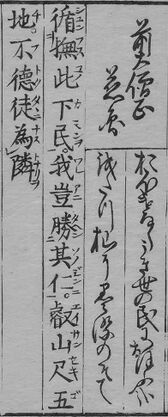 前大僧正
慈圓
おほけなくうき世の民におほふ哉
我たつ杣に墨染のそて
循撫此下民。我豈勝其仁。叡山尺五
地。不德徒為隣